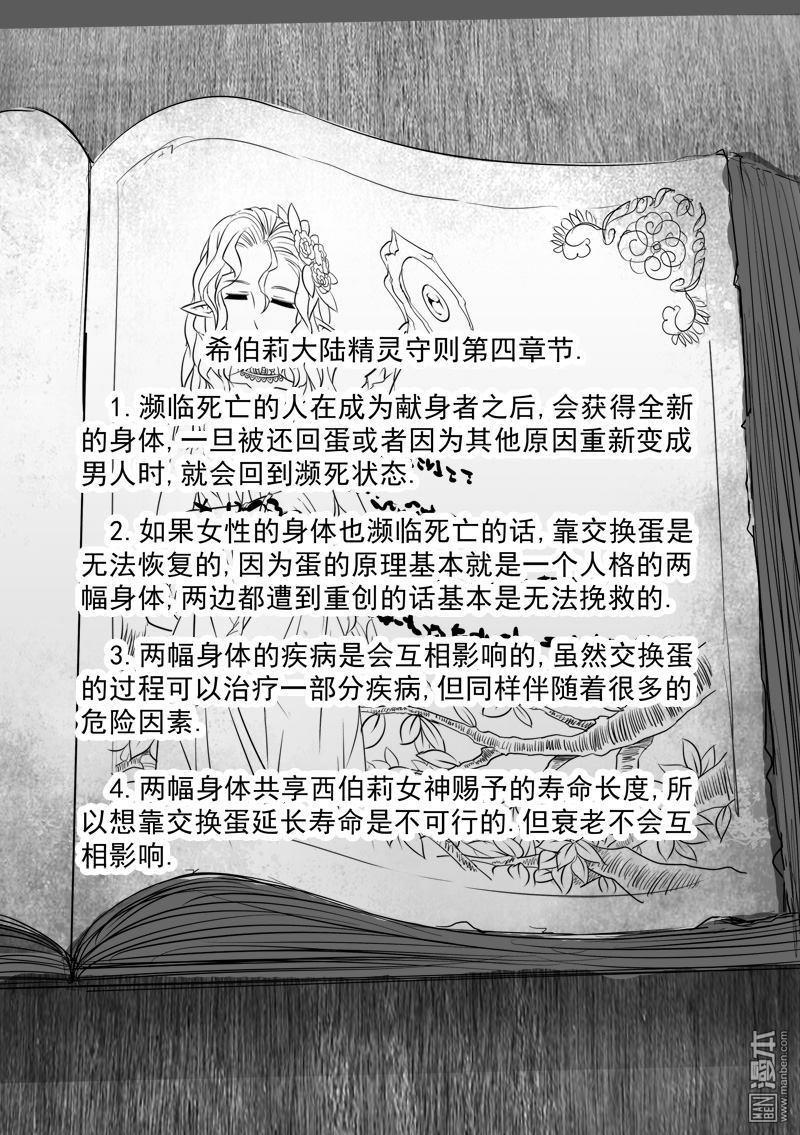 希伯莉大陆精灵守则第四章节.
1. 濒临死亡的人在成为献身者之后,会获得全新
的身体,一旦被还回蛋或者因为其他原因重新变成
男人时,就会回到濒死状态.
2. 如果女性的身体也濒临死亡的话,靠交换蛋是
无法恢复的,因为蛋的原理基本就是一个人格的两
幅身体,两边都遭到重创的话基本是无法挽救的.
3. 两幅身体的疾病是会互相影响的,虽然交换蛋
的过程可以治疗一部分疾病,但同样伴随着很多的
危险因素.
4. 两幅身体共享西伯莉女神赐予的寿命长度,所
以想靠交换蛋延长寿命是不可行的.但衰老不会互
相影响.
MAN
BEN
漫本
www.manben.com